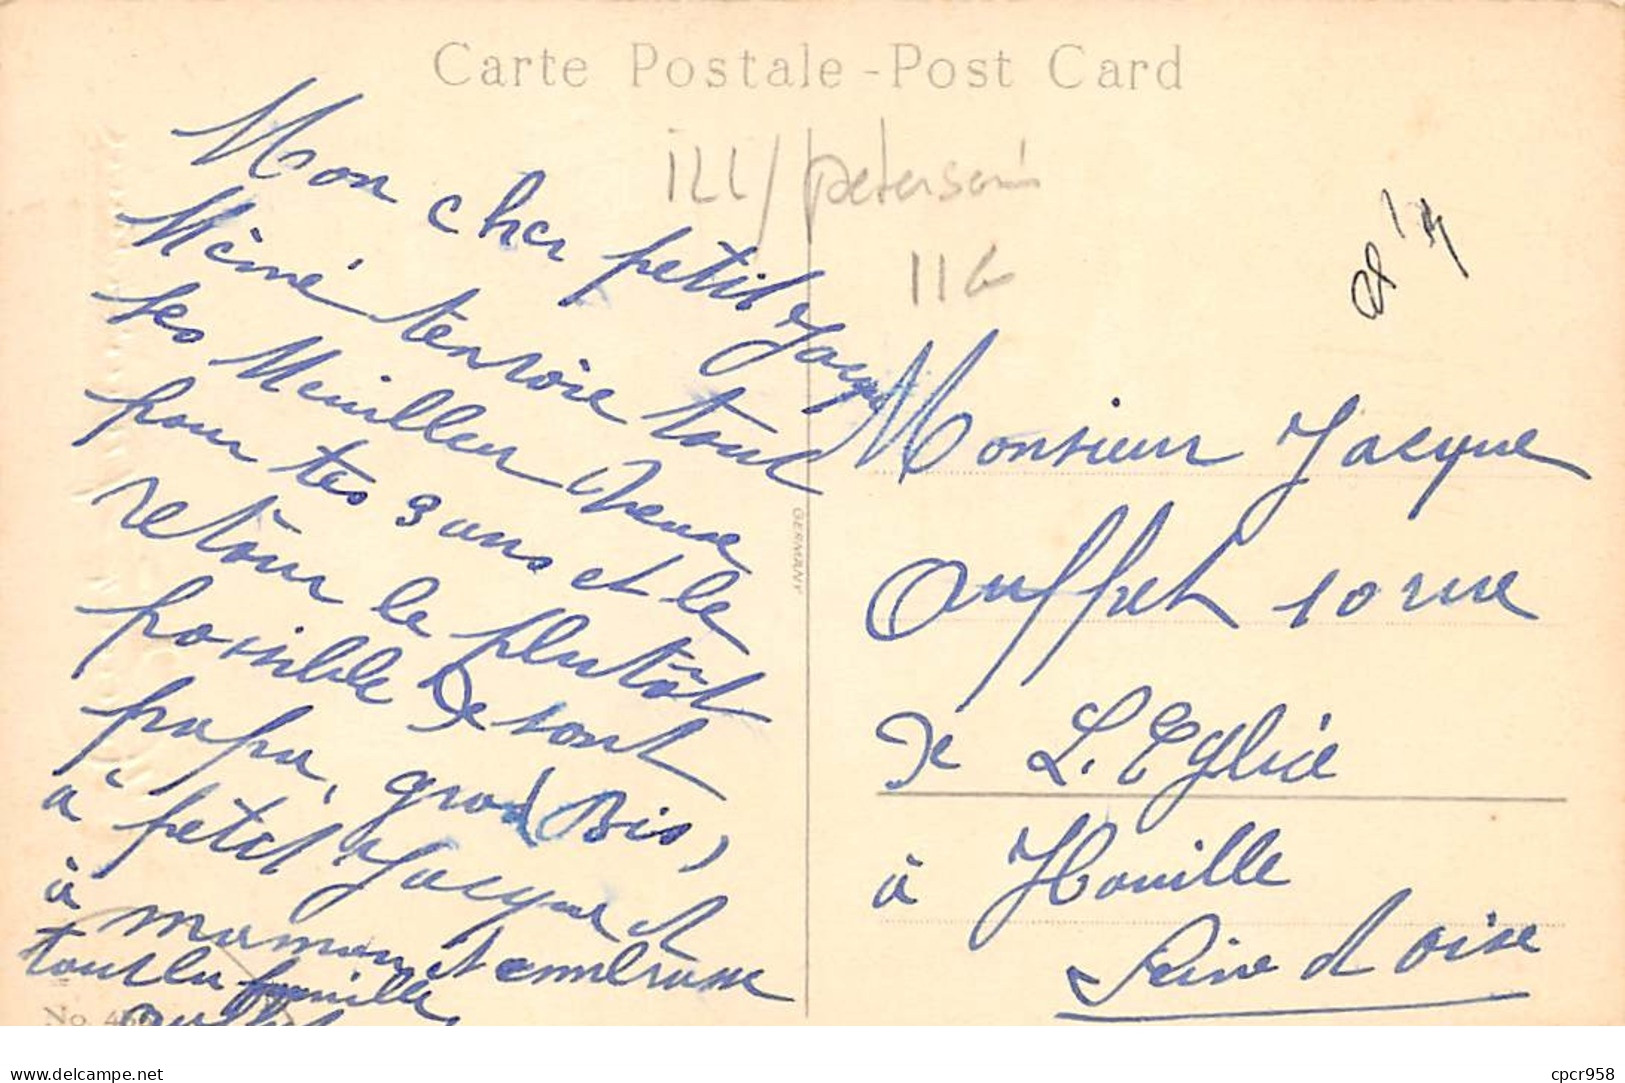 Carte Postale - Post Card
ILL/petersen
116
Mon cher petit Jacque
Mémé tenvoie tout
ses Meilleur Veux
pour tes 3 ans et le
retour le plutôt
possible De ront
papa, gros (Bis)
à petit Jacque et
à maman et embrasse
toute la famille
GERMANY
Monsieur Jacque
Ouffet 10 rue
De L'Eglise
à Houille
Seine et oise
No. 45
delcampe.net
cpcr958